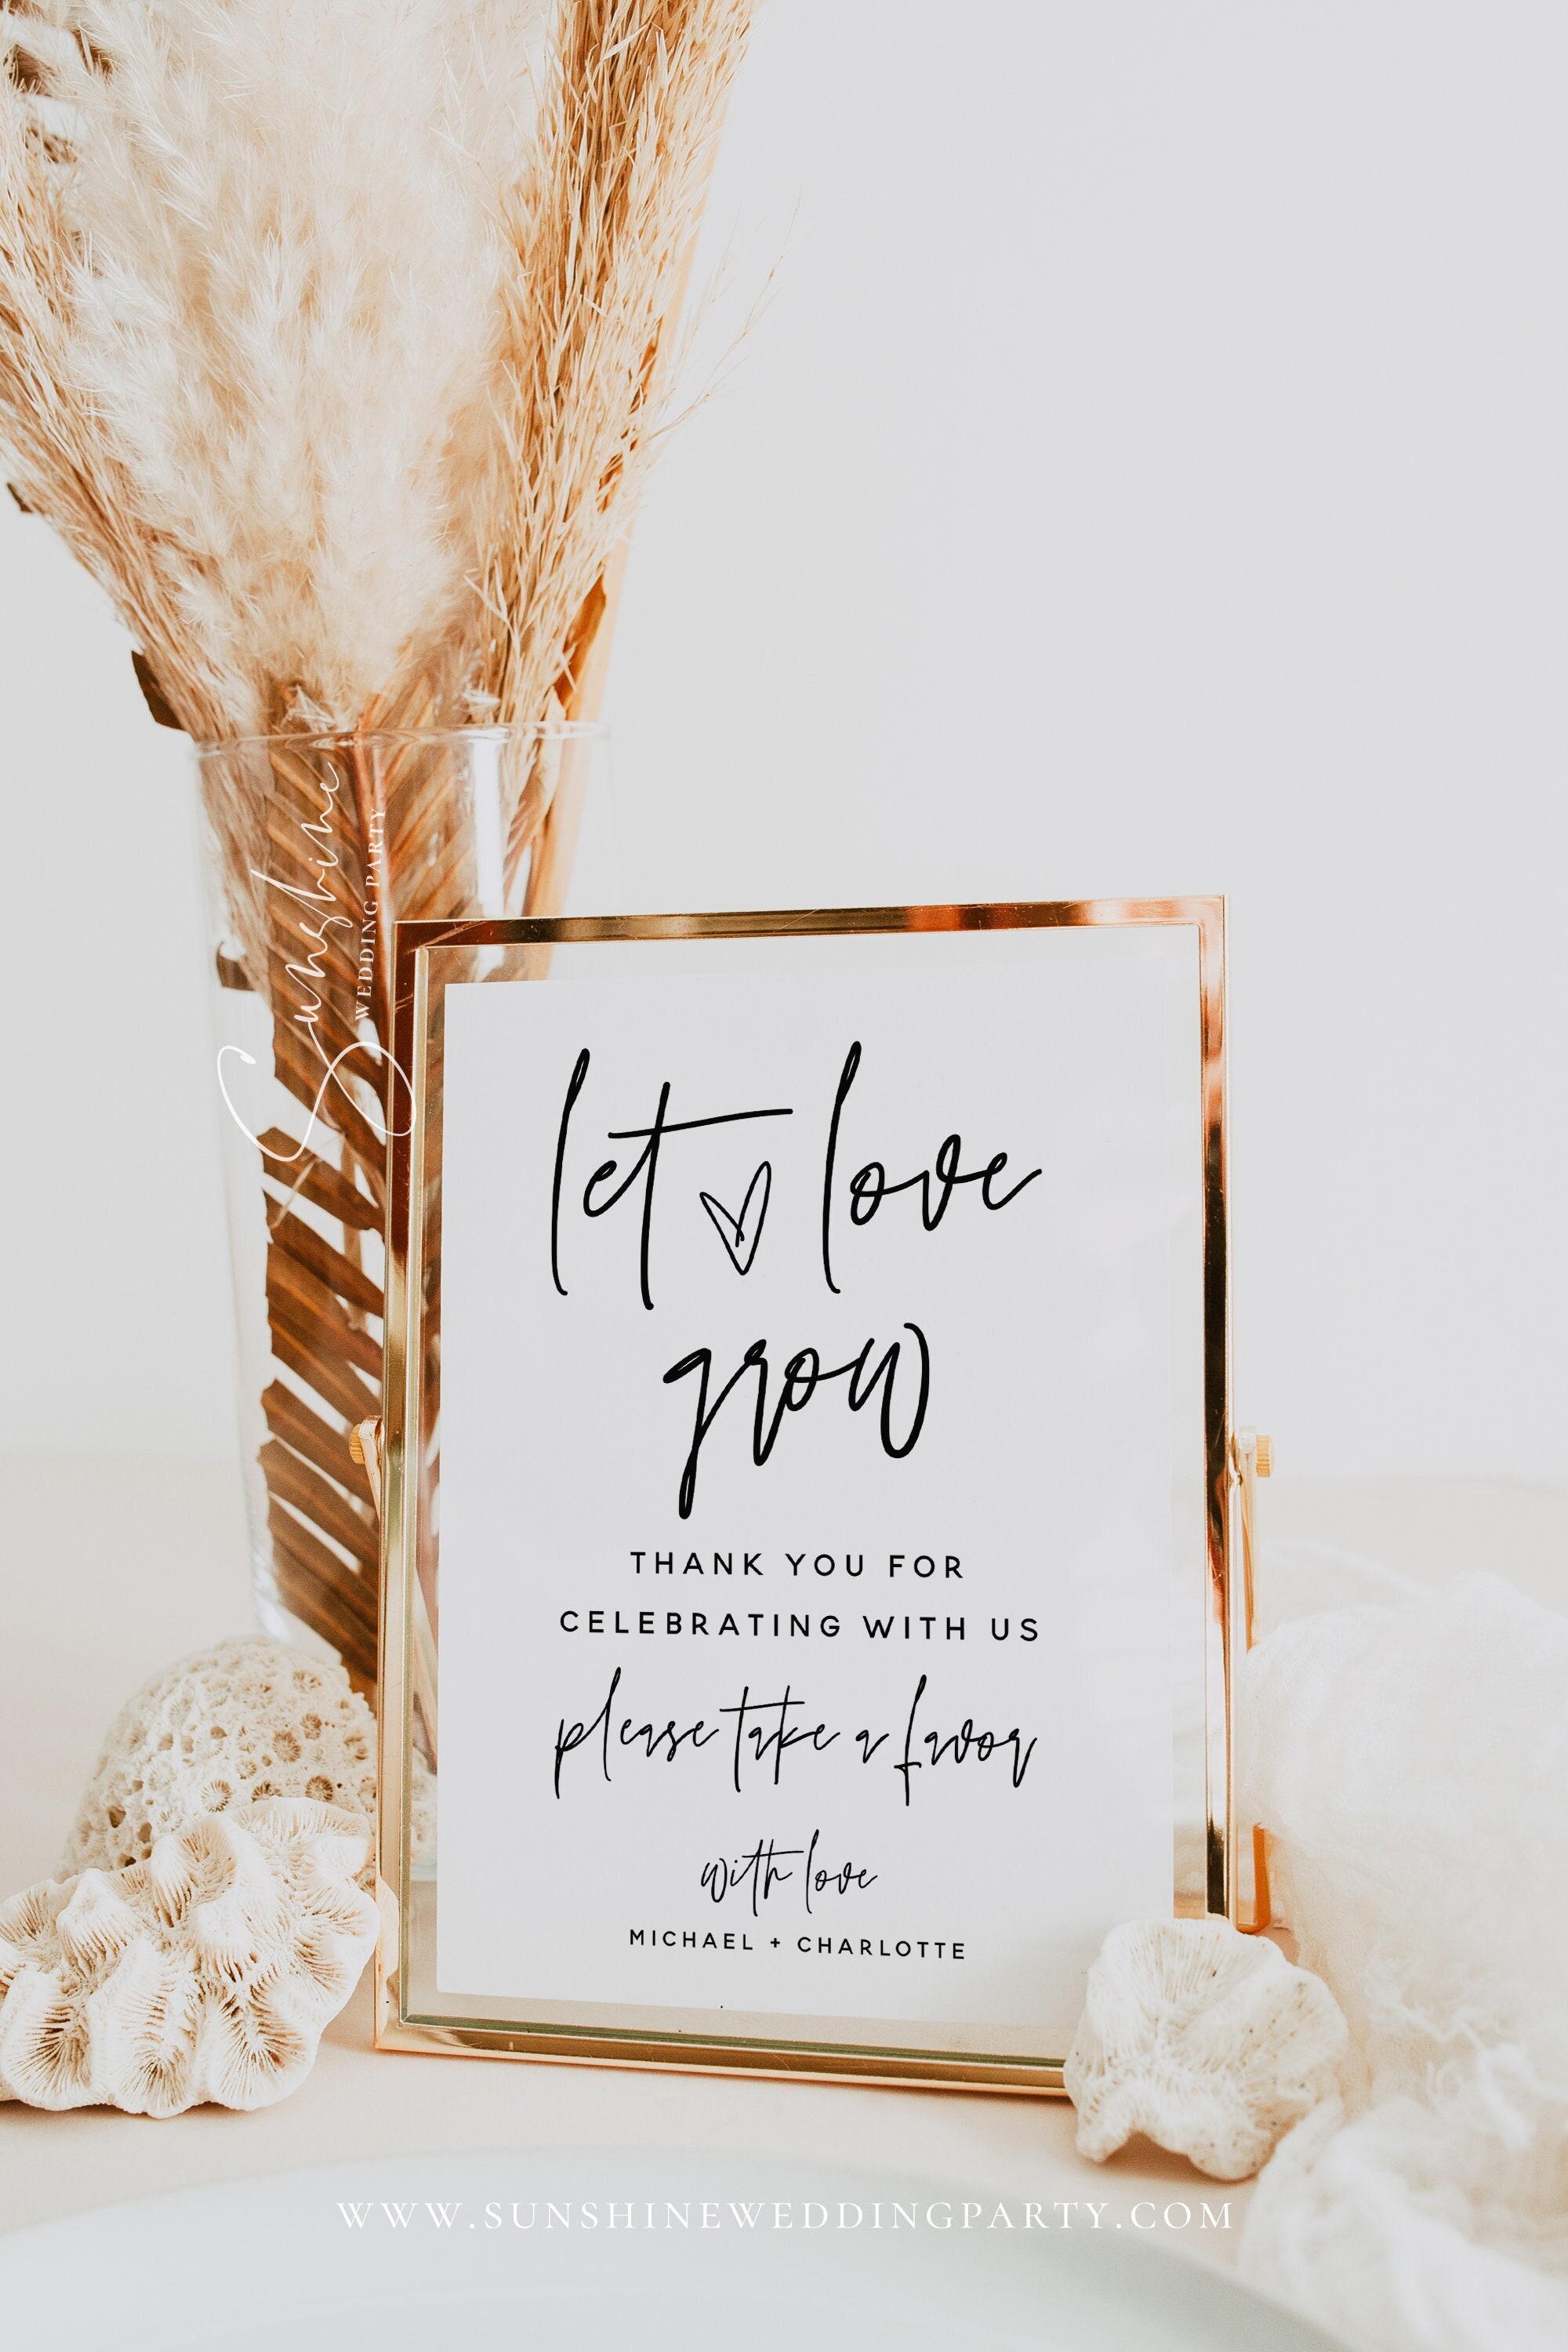 Sunshine
WEDDING PARTY
let love
grow
THANK YOU FOR
CELEBRATING WITH US
please take a favor
with love
MICHAEL + CHARLOTTE
WWW.SUNSHINEWEDDINGPARTY.COM